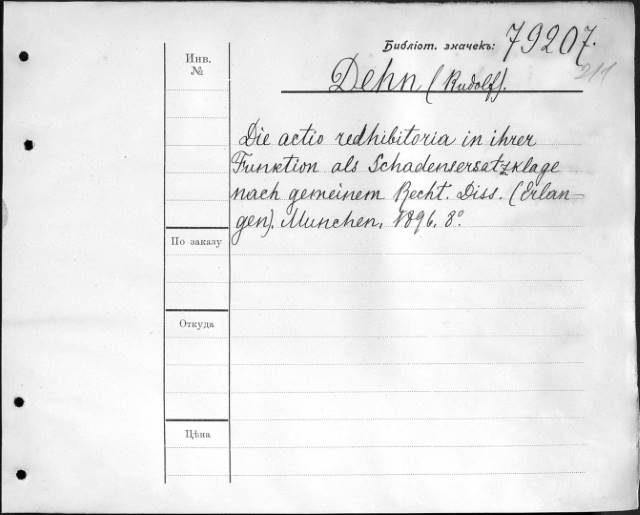 Библіот. значекъ: 79207.
211
Инв.
№
Dehn (Rudolf).
Die actio redhibitoria in ihrer
Funktion als Schadensersatzklage
nach gemeinem Recht. Diss. (Erlan-
gen). Munchen, 1896. 8°.
По заказу
Откуда
Цѣна